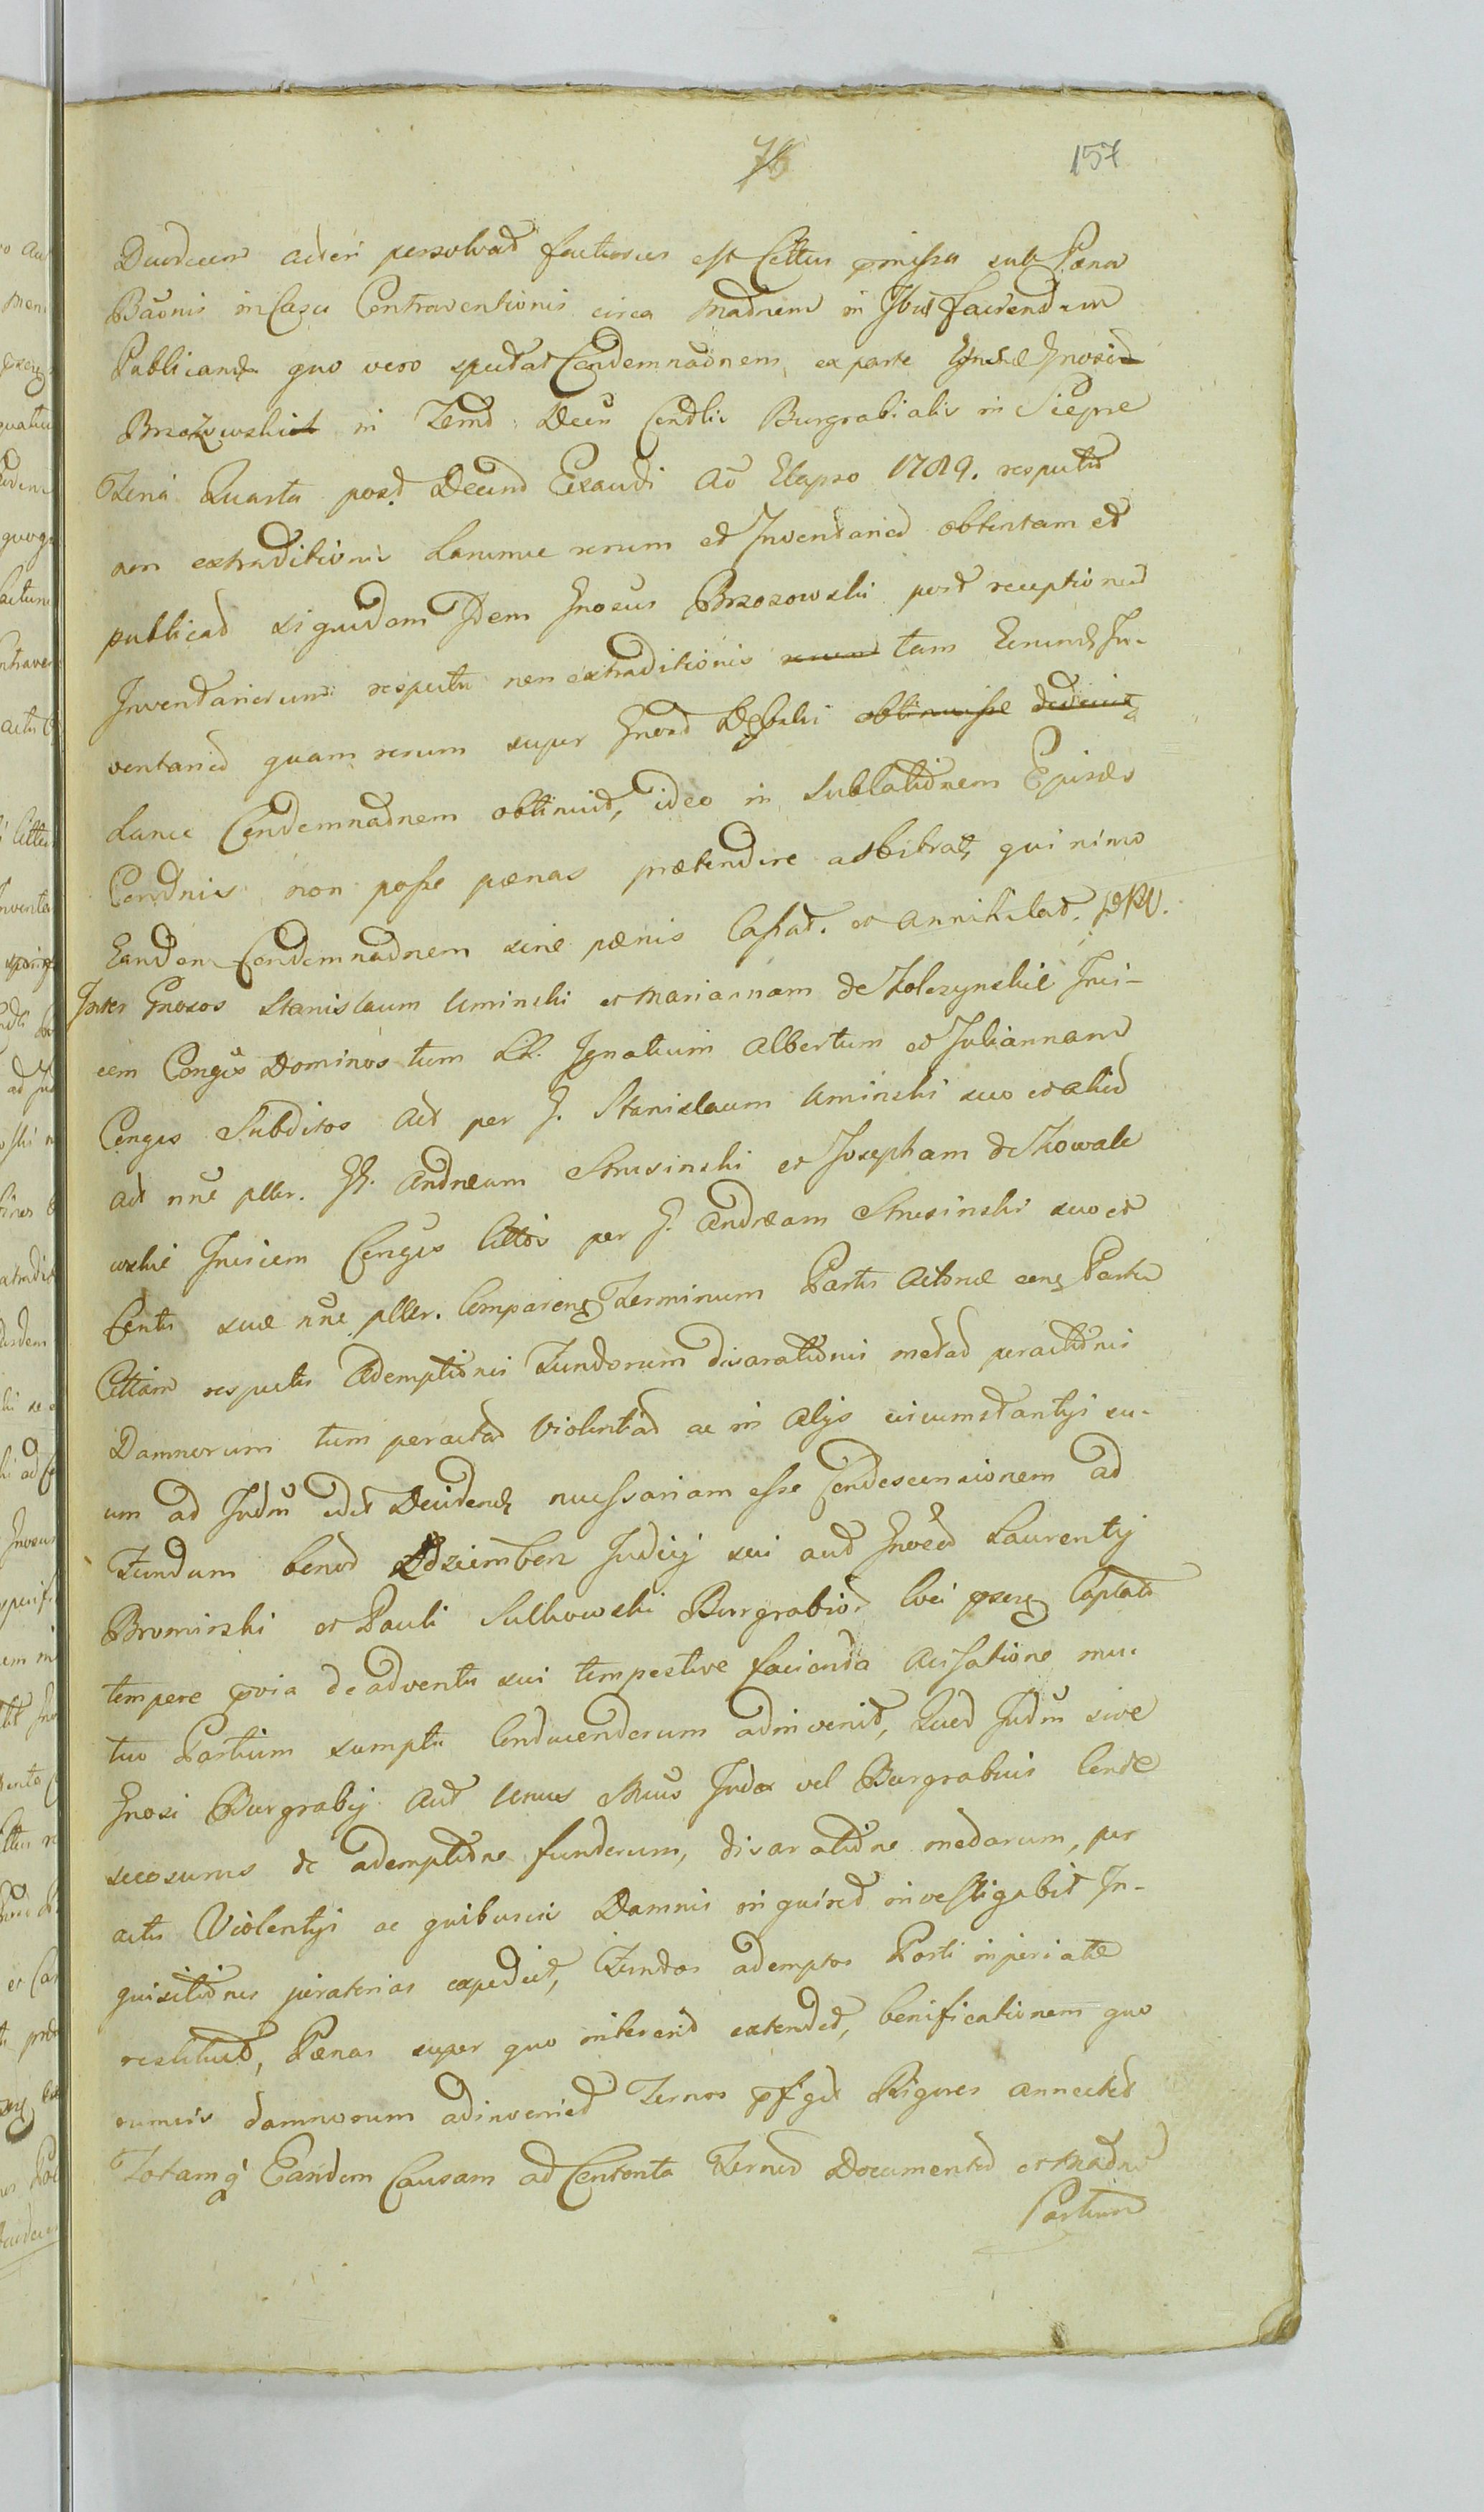 76 157
Duodecim Actori persolvat facturus est Cittus pmissa sub Pæna
Bãonis in Casu Contraventionis circa madnem in Ibus faciendum
Publicandæ quo vero spectat Condemnadnem ex parte Gnosi
Brzozowskich in Termo Decn Condlis Burgrabialis in Sierpce
Feria Quarta post Dcam Exaudi Ao Elapso 1789. respectu
non extraditionis Lanceae rerum et Inventarior obtentam et
publicat siquidem Idem Gnosus Brzozowski post receptionem
Inventariorum respectu non extraditionis tam Eorund In-
ventarior quam rerum super Gnoso Dębski obtinuisse
Lance Condemnadnem obtinuit, ideo in sublatidnem Ejusdes
Condnis non posse pænas prætendere arbitrat, qui nimo
Eandem Condemnadnem sine pænis Cassat. et annihilat. PPV.
Inter Gnosos Stanislaum Uminski et Mariannam de Zolczynskie Invi-
cem Conges Dominos tum LL. Ignatium Albertum et Juliannam
Conges Subditos Act per G. Stanislaum Uminski suo et alior
Act nne pller. GG. Andream Strusinski et Josepham de Kowale
wskie Invicem Conges Cittos per G. Andream Strusinski suo et
Contis suæ nne pller. Comparen Terminum Partis Actoreæ cum Parte
Cittam respectu Ademptidnis Fundorum disaratidnis metar peractidnis
Damnorum tum peractar Violentiar ac in Alys circumstantys su-
um ad Judm edit Deciden necessariam esse Condescensionem ad
Fundum bonor Zdziemborz Judicy sui aut Gnosor Laurenty
Bromirski et Pauli Sulkowski Burgrabior loci psen Captato
tempore pvia de adventu sui tempestive facienda Avisatione mu-
tuo Partium sumptu Conducendorum adinvenit, Quod Judm sive
Gnosi Burgraby Aut Unus Judex vel Burgrabius Conde
scesurus de ademptidne fundorum, disaratidne medarum, per
actis Violentys ac quibusvis Damnis inquiret investigabit In-
quisitidnes juratorias expediet, Fundos ademptos Parti injuriatæ
restituet, Pænas super quo intererit extendet, bonificationem quo
rumvis damnorum adinveniet Ternos pfiget Rigores annectet
Totamq Eandem Causam ad Contenta Ternor Documentor et Madne
Partium